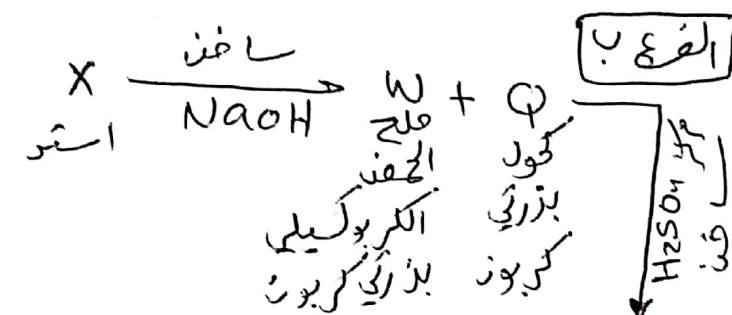 الفرع ب
X ساخن NaOH W + Q
استر
ملح الحمض الكربوكسيلي بذرتي كربون
كحول بذرتي كربون
H₂SO₄ مركز ساخن